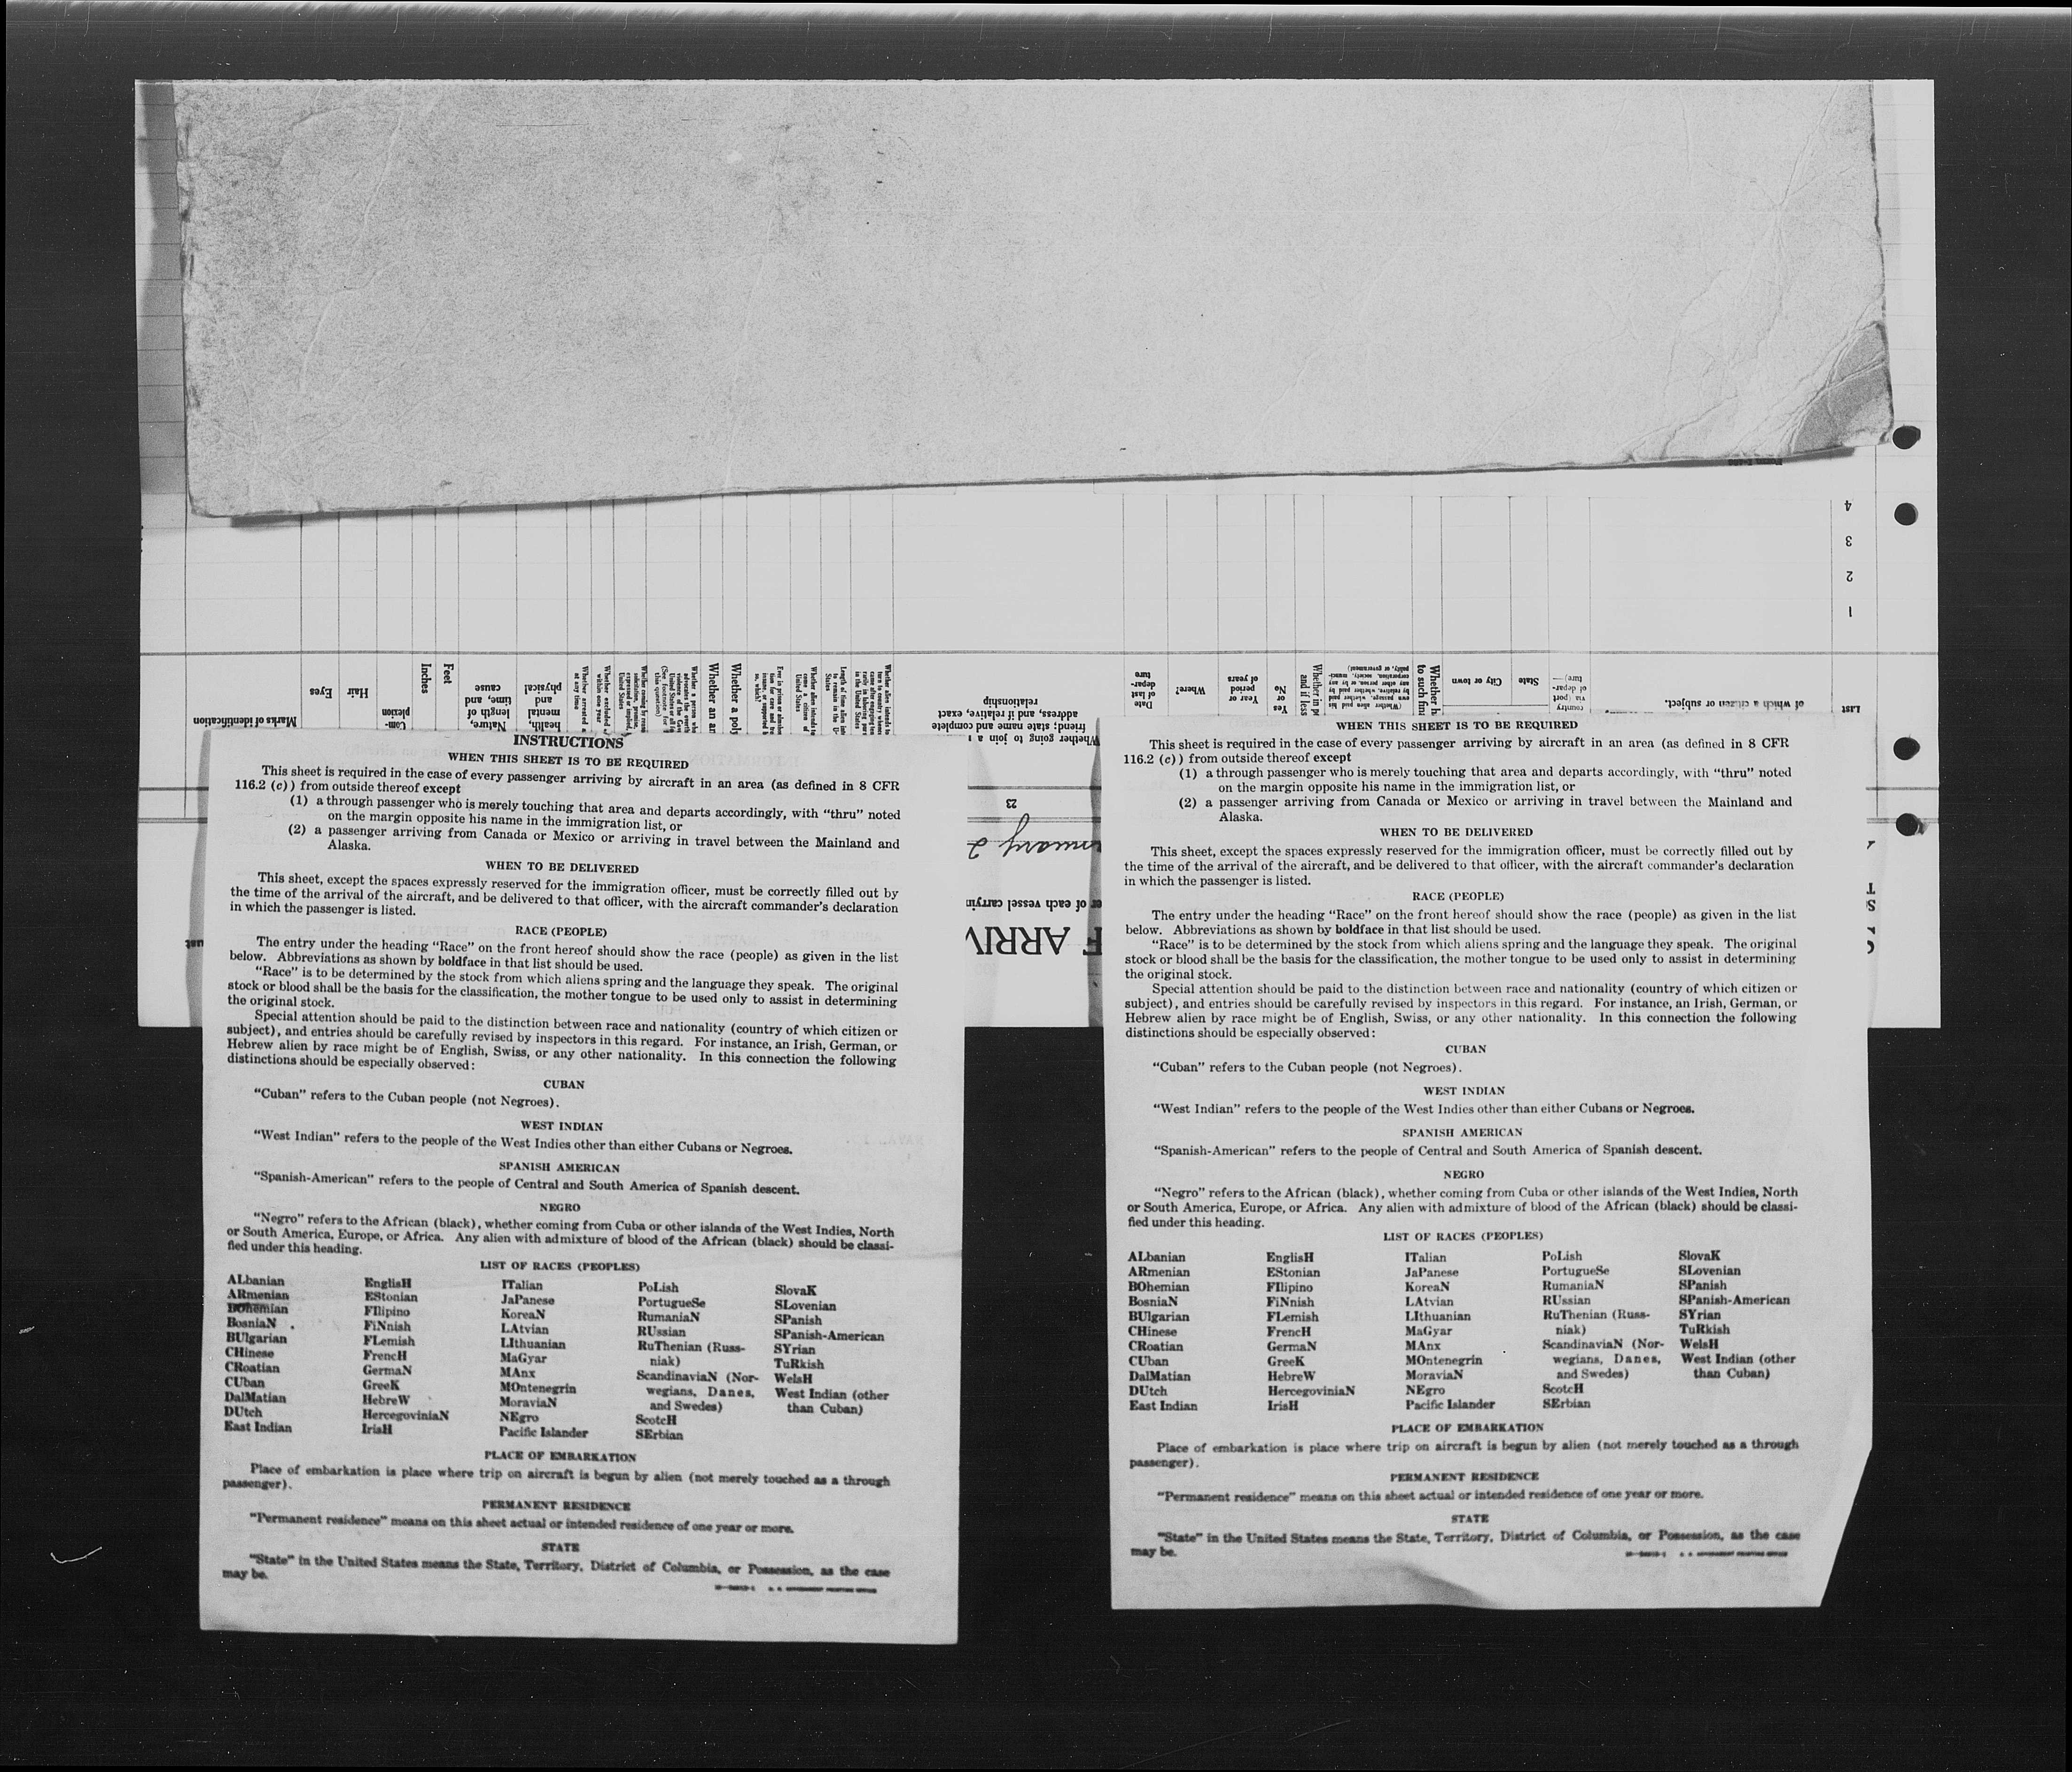 Form I-
4
3
2
1
Marks of identification
Eyes
Hair
Com-
plexion
Inches
Feet
Nature,
length of
time, and
cause
health,
mental
and
physical
Whether arrested a
at any time
Whether excluded a
within one year
Whether coming by reaso
solicitation, promise,
expressed or implied,
United States
Whether a person who
advocates the overth
violence of the Gove
United States or all fo
(See footnote for
this question)
Whether an an
Whether a poly
Ever in prison or almsho
tion for care and tre
insane, or supported b
so, which?
Whether alien intends to
come a citizen of
United States
Length of time alien inte
to remain in the U
States
Whether alien intends to
turn to country whence
came after engaging tem
rarily in laboring purs
in the United States
Whether going to join a
friend; state name and complete
address, and if relative, exact
relationship
Date
of last
depar-
ture
Where?
Year or
period
of years
Yes
or
No
Whether in po
and if less
(Whether alien paid his
own passage, whether paid
by relative, whether paid by
any other person, or by any
corporation, society, munici-
pality, or government)
Whether h
to such fina
City or town
State
country
via (port
of depar-
ture)—
of which a citizen or subject.
List
23
anuary 2
er of each vessel carryin
F ARRIV
ust
INSTRUCTIONS
WHEN THIS SHEET IS TO BE REQUIRED
This sheet is required in the case of every passenger arriving by aircraft in an area (as defined in 8 CFR
116.2 (c)) from outside thereof except
(1) a through passenger who is merely touching that area and departs accordingly, with “thru” noted
on the margin opposite his name in the immigration list, or
(2) a passenger arriving from Canada or Mexico or arriving in travel between the Mainland and
Alaska.
WHEN TO BE DELIVERED
This sheet, except the spaces expressly reserved for the immigration officer, must be correctly filled out by
the time of the arrival of the aircraft, and be delivered to that officer, with the aircraft commander’s declaration
in which the passenger is listed.
RACE (PEOPLE)
The entry under the heading “Race” on the front hereof should show the race (people) as given in the list
below. Abbreviations as shown by boldface in that list should be used.
“Race” is to be determined by the stock from which aliens spring and the language they speak. The original
stock or blood shall be the basis for the classification, the mother tongue to be used only to assist in determining
the original stock.
Special attention should be paid to the distinction between race and nationality (country of which citizen or
subject), and entries should be carefully revised by inspectors in this regard. For instance, an Irish, German, or
Hebrew alien by race might be of English, Swiss, or any other nationality. In this connection the following
distinctions should be especially observed:
CUBAN
“Cuban” refers to the Cuban people (not Negroes).
WEST INDIAN
“West Indian” refers to the people of the West Indies other than either Cubans or Negroes.
SPANISH AMERICAN
“Spanish-American” refers to the people of Central and South America of Spanish descent.
NEGRO
“Negro” refers to the African (black), whether coming from Cuba or other islands of the West Indies, North
or South America, Europe, or Africa. Any alien with admixture of blood of the African (black) should be classi-
fied under this heading.
LIST OF RACES (PEOPLES)
ALbanian
ARmenian
BOhemian
BosniaN
BUlgarian
CHinese
CRoatian
CUban
DalMatian
DUtch
East Indian
EnglisH
EStonian
FIlipino
FiNnish
FLemish
FrencH
GermaN
GreeK
HebreW
HercegoviniaN
IrisH
ITalian
JaPanese
KoreaN
LAtvian
LIthuanian
MaGyar
MAnx
MOntenegrin
MoraviaN
NEgro
Pacific Islander
PoLish
PortugueSe
RumaniaN
RUssian
RuThenian (Russ-
niak)
ScandinaviaN (Nor-
wegians, Danes,
and Swedes)
ScotcH
SErbian
SlovaK
SLovenian
SPanish
SPanish-American
SYrian
TuRkish
WelsH
West Indian (other
than Cuban)
PLACE OF EMBARKATION
Place of embarkation is place where trip on aircraft is begun by alien (not merely touched as a through
passenger).
PERMANENT RESIDENCE
“Permanent residence” means on this sheet actual or intended residence of one year or more.
STATE
“State” in the United States means the State, Territory, District of Columbia, or Possession, as the case
may be.
U. S. GOVERNMENT PRINTING OFFICE
WHEN THIS SHEET IS TO BE REQUIRED
This sheet is required in the case of every passenger arriving by aircraft in an area (as defined in 8 CFR
116.2 (c)) from outside thereof except
(1) a through passenger who is merely touching that area and departs accordingly, with “thru” noted
on the margin opposite his name in the immigration list, or
(2) a passenger arriving from Canada or Mexico or arriving in travel between the Mainland and
Alaska.
WHEN TO BE DELIVERED
This sheet, except the spaces expressly reserved for the immigration officer, must be correctly filled out by
the time of the arrival of the aircraft, and be delivered to that officer, with the aircraft commander’s declaration
in which the passenger is listed.
RACE (PEOPLE)
The entry under the heading “Race” on the front hereof should show the race (people) as given in the list
below. Abbreviations as shown by boldface in that list should be used.
“Race” is to be determined by the stock from which aliens spring and the language they speak. The original
stock or blood shall be the basis for the classification, the mother tongue to be used only to assist in determining
the original stock.
Special attention should be paid to the distinction between race and nationality (country of which citizen or
subject), and entries should be carefully revised by inspectors in this regard. For instance, an Irish, German, or
Hebrew alien by race might be of English, Swiss, or any other nationality. In this connection the following
distinctions should be especially observed:
CUBAN
“Cuban” refers to the Cuban people (not Negroes).
WEST INDIAN
“West Indian” refers to the people of the West Indies other than either Cubans or Negroes.
SPANISH AMERICAN
“Spanish-American” refers to the people of Central and South America of Spanish descent.
NEGRO
“Negro” refers to the African (black), whether coming from Cuba or other islands of the West Indies, North
or South America, Europe, or Africa. Any alien with admixture of blood of the African (black) should be classi-
fied under this heading.
LIST OF RACES (PEOPLES)
ALbanian
ARmenian
BOhemian
BosniaN
BUlgarian
CHinese
CRoatian
CUban
DalMatian
DUtch
East Indian
EnglisH
EStonian
FIlipino
FiNnish
FLemish
FrencH
GermaN
GreeK
HebreW
HercegoviniaN
IrisH
ITalian
JaPanese
KoreaN
LAtvian
LIthuanian
MaGyar
MAnx
MOntenegrin
MoraviaN
NEgro
Pacific Islander
PoLish
PortugueSe
RumaniaN
RUssian
RuThenian (Russ-
niak)
ScandinaviaN (Nor-
wegians, Danes,
and Swedes)
ScotcH
SErbian
SlovaK
SLovenian
SPanish
SPanish-American
SYrian
TuRkish
WelsH
West Indian (other
than Cuban)
PLACE OF EMBARKATION
Place of embarkation is place where trip on aircraft is begun by alien (not merely touched as a through
passenger).
PERMANENT RESIDENCE
“Permanent residence” means on this sheet actual or intended residence of one year or more.
STATE
“State” in the United States means the State, Territory, District of Columbia, or Possession, as the case
may be.
U. S. GOVERNMENT PRINTING OFFICE